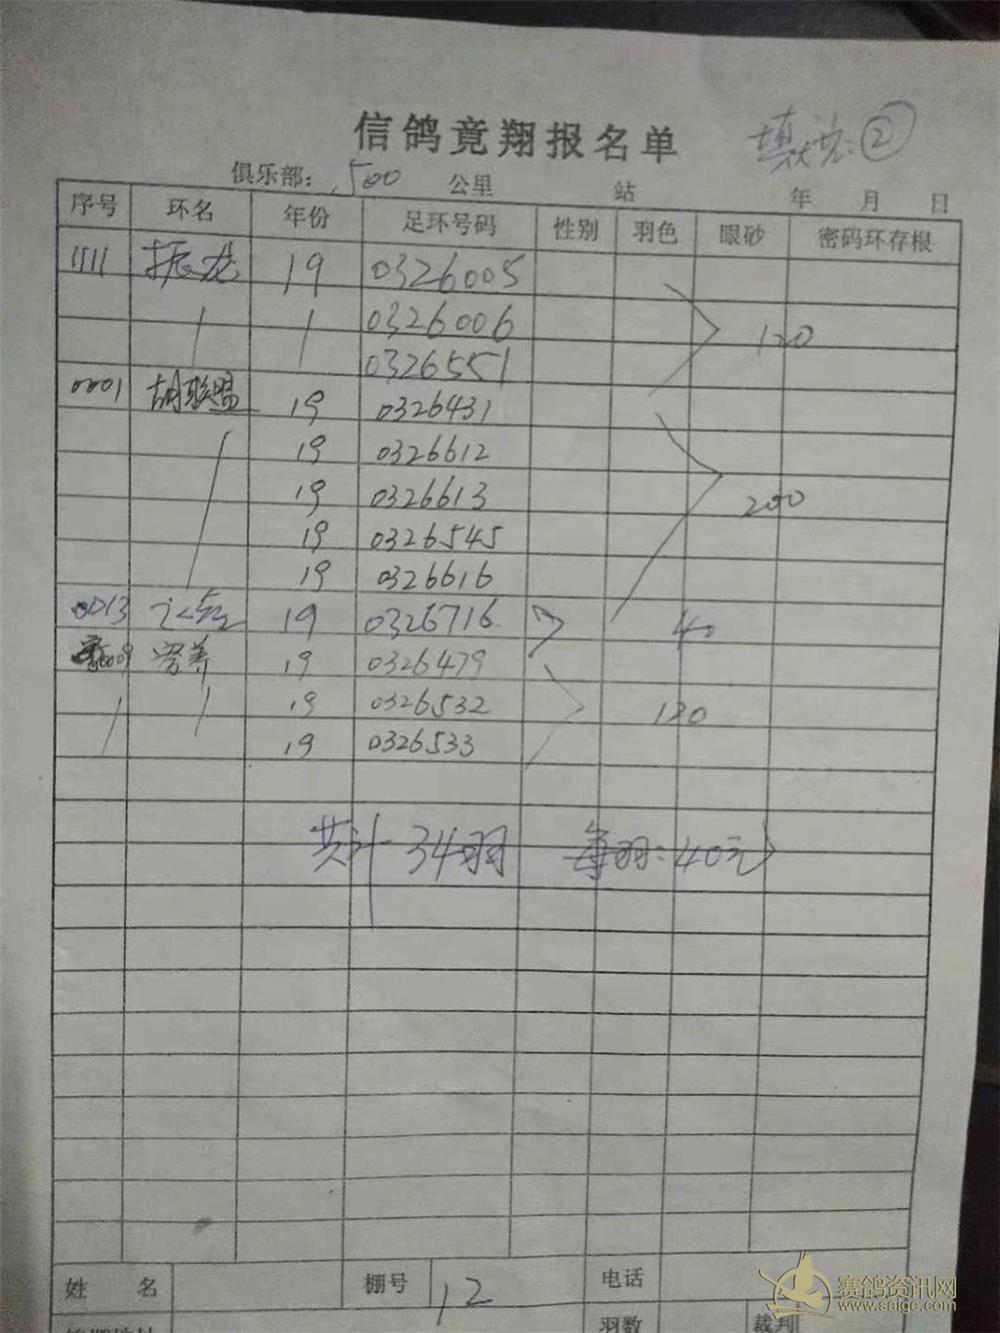 信鸽竟翔报名单
②
俱乐部： 500 公里 站 年 月 日
序号 环名 年份 足环号码 性别 羽色 眼砂 密码环存根
1111 振龙 19 0326005
0326006 120
0326551
0001 胡联盟 19 0326431
19 0326612
19 0326613 200
19 0326545
19 0326616
0013 19 0326716 40
0009 19 0326479
19 0326532 120
19 0326533
共计 34羽 每羽：40元
姓 名 棚号 12 电话
羽数 裁判
赛鸽资讯网
www.saige.com